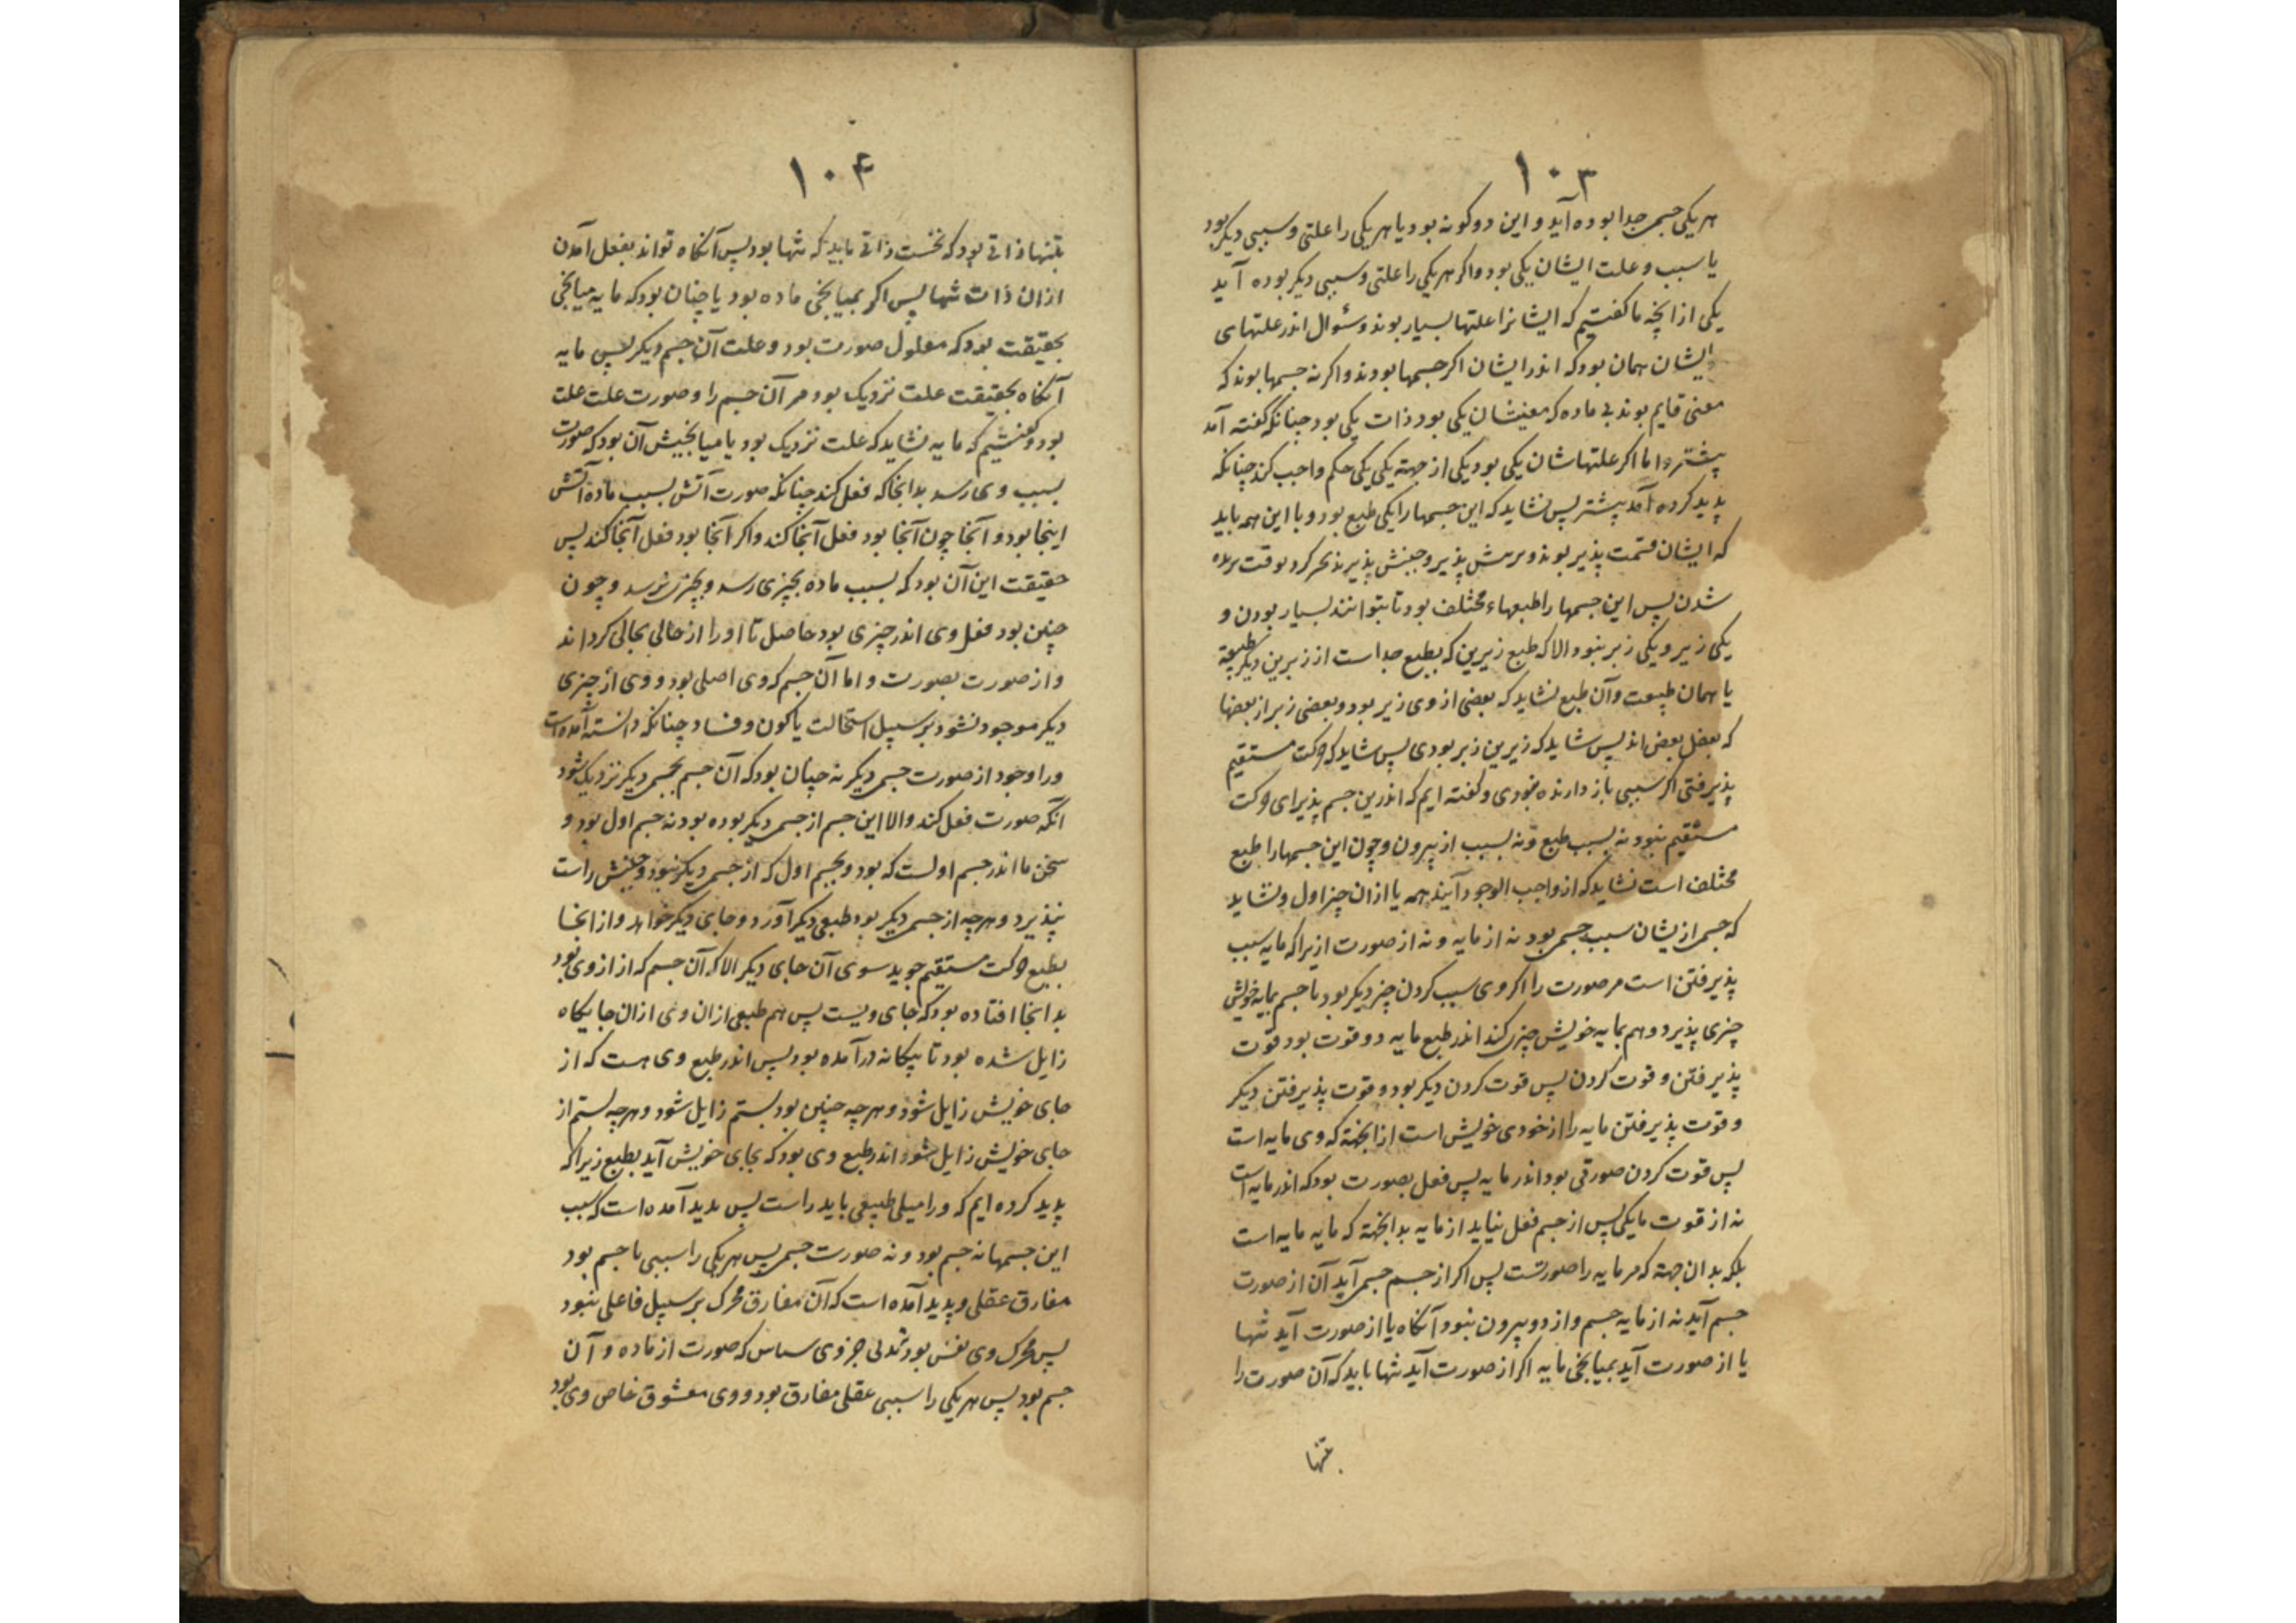 ۱۰۳
هر یکی جسمی جدا بوده آید و این دو گونه بود یا هر یکی را علتی و سببی دیگر بود
یا سبب و علت ایشان یکی بود و اگر هر یکی را علتی و سببی دیگر بوده آید
یکی از آنچه ما گفتیم که ایشانرا علتها بسیار بوند و سئوال اندر علتهای
ایشان همان بود که اندر ایشان اگر جسمها بودند و اگر نه جسمها بوند که
معنی قایم بوند بی ماده که معنیشان یکی بود ذات یکی بود چنانکه گفته آمد
پیشتر و اما اگر علتهاشان یکی بود یکی از جهة یکی یکی حکم واجب کند چنانکه
پدید کرده آمد پیشتر پس نشاید که این جسمها را یکی طبع بود و با این همه باید
که ایشان قسمت پذیر بوند و برش پذیر و جنبش پذیر
شدن پس این جسمها را طبعهاء مختلف بود تا بتوانند بسیار بودن و
یکی زیر و یکی زبر نبود الا که طبع زیرین که بطبع جداست از زبرین دیگر طبیعة
یا همان طبیعت و آن طبع نشاید که بعضی از وی زیر بود و بعضی زبر از بعضها
که بعض بعض اند پس شاید که زیرین زبر بودی پس شاید که حرکت مستقیم
پذیرفتی اگر سببی باز دارنده نبودی و گفته ایم که اندرین جسم پذیرای حرکت
مستقیم نبود نه بسبب طبع و نه بسبب از بیرون و چون این جسمها را طبع
مختلف است نشاید که از واجب الوجود آیند همه یا از ان چیز اول و نشاید
که جسمی ازیشان سبب جسمی بود نه از مایه و نه از صورت ازیرا که مایه سبب
پذیرفتن است مر صورت را اگر وی سبب کردن چیز دیگر بود تا جسم بمایه خویش
چیزی پذیرد و هم بمایه خویش چیزی کند اندر طبع مایه دو قوت بود قوت
پذیرفتن و قوت کردن پس قوت کردن دیگر بود و قوت پذیرفتن دیگر
و قوت پذیرفتن مایه را از خودی خویش است از انجهة که وی مایه است
پس قوت کردن صورتی بود اندر مایه پس فعل بصورت بود که اندر مایه است
نه از قوت مایگی پس از جسم فعل نیاید از مایه بدانجهة که مایه مایه است
بلکه بدان جهة که مر مایه را صورتست پس اگر از جسم جسمی آید آن از صورت
جسم آید نه از مایه جسم و از دو بیرون نبود آنگاه یا از صورت آید تنها
یا از صورت آید بمیانجی مایه اگر از صورت آید تنها باید که آن صورت را
تنها
۱۰۴
بتنها ذاتی بود که نخست ذاتی باید که تنها بود پس آنگاه تواند بفعل آمدن
ازان ذات تنها پس اگر بمیانجی ماده بود یا چنان بود که مایه میانجی
بحقیقت بود که معلول صورت بود و علت آن جسم دیگر پس مایه
آنگاه بحقیقت علت نزدیک بود مر آن جسم را و صورت علت علت
بود و گفتیم که مایه نشاید که علت نزدیک بود یا میانجیش آن بود که صورت
بسبب وی رسد بدانجا که فعل کند چنانکه صورت آتش بسبب ماده آتش
اینجا بود و آنجا چون آنجا بود فعل آنجا کند و اگر آنجا بود فعل آنجا کند پس
حقیقت این آن بود که بسبب ماده بچیزی رسد و بچیزی نرسد و چون
چنین بود فعل وی اندر چیزی بود حاصل تا او را از حالی بحالی گرداند
و از صورت بصورت و اما آن جسم که وی اصلی بود و وی از چیزی
دیگر موجود نشود بر سبیل استحالت یا کون و فساد چنانکه دانسته آمده است
ورا وجود از صورت جسمی دیگر نه چنان بود که آن جسم بجسمی دیگر نزدیک شود
آنگه صورت فعل کند والا این جسم از جسمی دیگر بوده بود نه جسم اول بود و
سخن ما اندر جسم اولست که بود و بجسم اول که از جسمی دیگر نبود و جنبش راست
نپذیرد و هرچه از جسمی دیگر بود طبعی دیگر آورد و جای دیگر خواهد و از انجا
بطبع حرکت مستقیم جوید سوی آن جای دیگر الا که آن جسم که از از وی بود
بدانجا افتاده بود که جای ویست پس هم طبعی ازان وی ازان جایگاه
زایل شده بود تا بیگانه درآمده بود پس اندر طبع وی هست که از
جای خویش زایل شود و هرچه چنین بود بستم زایل شود و هرچه بستم از
جای خویش زایل شود اندر طبع وی بود که بجای خویش آید بطبع زیرا که
پدید کرده ایم که ورا میلی طبیعی باید راست پس پدید آمده است که سبب
این جسمها نه جسم بود و نه صورت جسمی پس هر یکی را سببی نا جسم بود
مفارق عقلی و پدید آمده است که آن مفارق محرک بر سبیل فاعلی نبود
پس محرک وی نفس بود که صورت از ماده و آن
جسم بود پس هر یکی را سببی عقلی مفارق بود و وی معشوق خاص وی بود